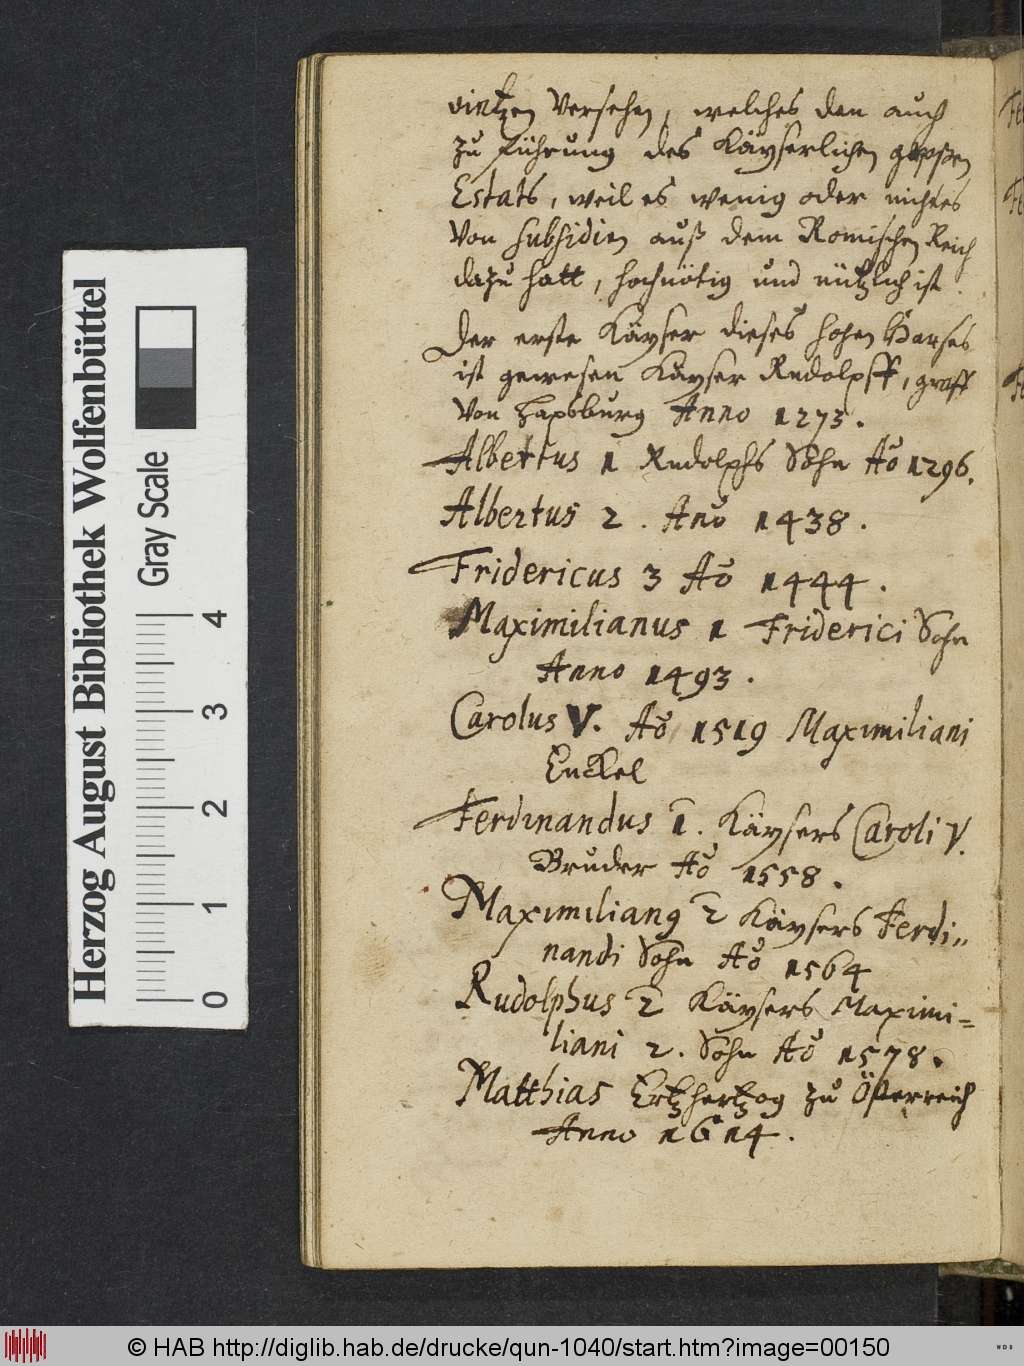 vintzen Versehen, welches den auch
zu führung des Käyserlichen grossen
Estats, weil es wenig oder nichtes
Von subsidien auß dem Romischen Reich
dazu hatt, hochnötig und nützlich ist.
Der erste Käyser dieses hohen Hauses
ist gewesen Käyser Rudolpff, graff
Von Hapsburg Anno 1273.
Albertus 1 Rudolphs Sohn Aō 1296.
Albertus 2. Anō 1438.
Fridericus 3 Aō 1444.
Maximilianus 1 Friderici Sohn
Anno 1493.
Carolus V. Aō 1519 Maximiliani
Enckel
Ferdinandus 1. Käysers Caroli V.
Bruder Aō 1558.
Maximilian9 2 Käysers Ferdi=
nandi Sohn Aō 1564
Rudolphus 2 Käysers Maximi=
liani 2. Sohn Aō 1578.
Matthias Ertzhertzog zu Österreich
Anno 1614.
Herzog August Bibliothek Wolfenbüttel
Gray Scale
0 1 2 3 4
© HAB http://diglib.hab.de/drucke/qun-1040/start.htm?image=00150